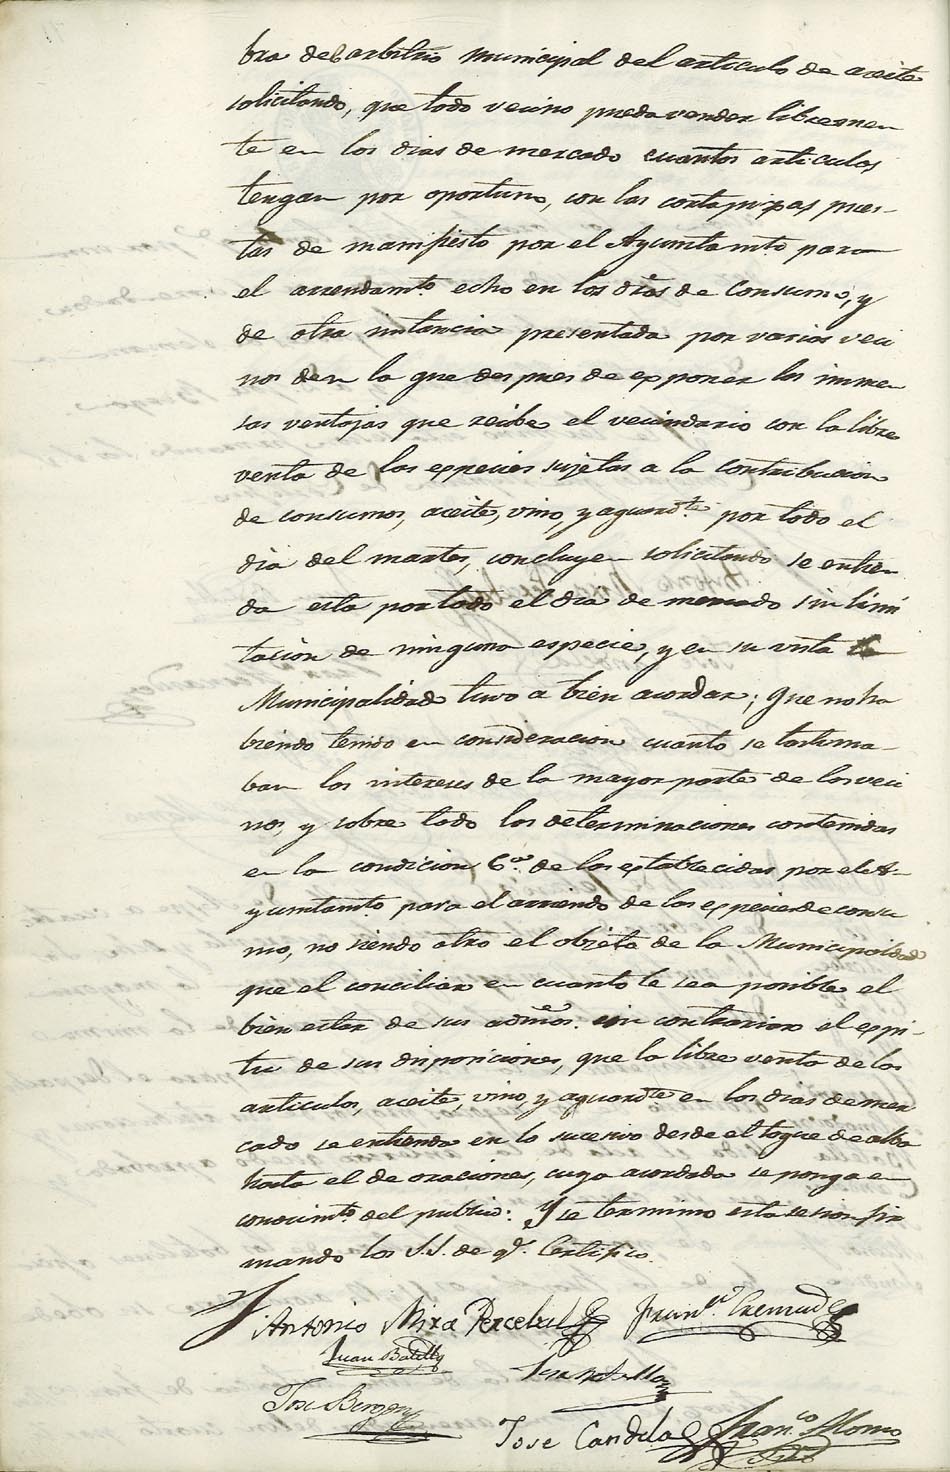 bra del arbitrio municipal del articulo de aceite
solicitando, que todo vecino pueda vender libremen
te en los dias de mercado cuantos articulos
tengan por oportuno, con las cortapizas pues-
tas de manifiesto por el Ayuntamto. para
el arrendamto. echo en los dros de Consumo, y
de otra instancia presentada por varios veci
nos den la que despues de exponer las inmen
sas ventajas que recibe el vecindario con la libre
venta de las especies sujetas a la contribucion
de consumos, aceite, vino, y aguardte. por todo el
dia del martes, concluyen solicitando se entien
da esta por todo el dia de mercado sin limi
tacion de ninguna especie, y en su vista la
Municipalidad tuvo a bien acordar; Que no ha
biendo tenido en consideracion cuanto se lastima-
ban los intereses de la mayor parte de los veci
nos, y sobre todo las determinaciones contenidas
en la condicion 6a. de las establecidas por el A-
yuntamto. para el arriendo de las especies de consu
mo, no siendo otro el objeto de la Municipalidad
que el conciliar en cuanto le sea posible el
bien estar de sus admos. sin contrariar el espi-
tu de sus disposiciones, que la libre venta de los
articulos, aceite, vino, y aguardte en los dias de mer
cado se entienda en lo sucesivo desde el toque de alba
hasta el de oraciones, cuyo acordado se ponga en
conocimto. del publico. Y se termino esta sesion fir
mando los S.S. de qe. Certifico.
Antonio Mira Perceval Franco.
Juan Botella
Jose
Jose Candela Franco.